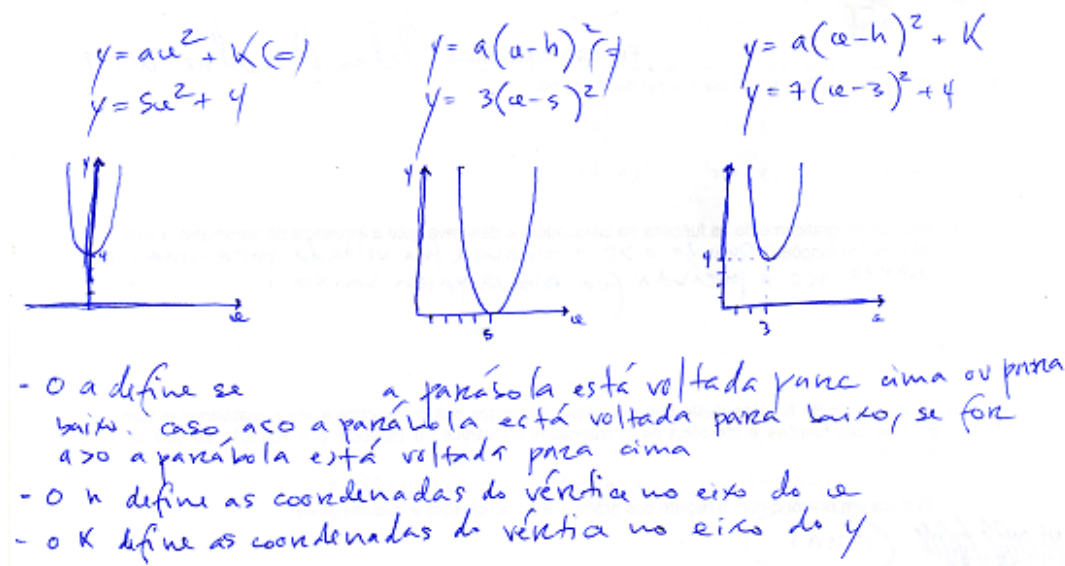 y = ax² + K (=)
y = 5x² + 4
y = a(x-h)² (=)
y = 3(x-5)²
y = a(x-h)² + K
y = 7(x-3)² + 4
y
4
x
y
5
x
4
3
x
- O a define se a parábola está voltada para cima ou para
baixo. caso a<0 a parábola está voltada para baixo, se for
a>0 a parábola está voltada para cima
- O h define as coordenadas do vértice no eixo do x
- O K define as coordenadas do vértice no eixo do y